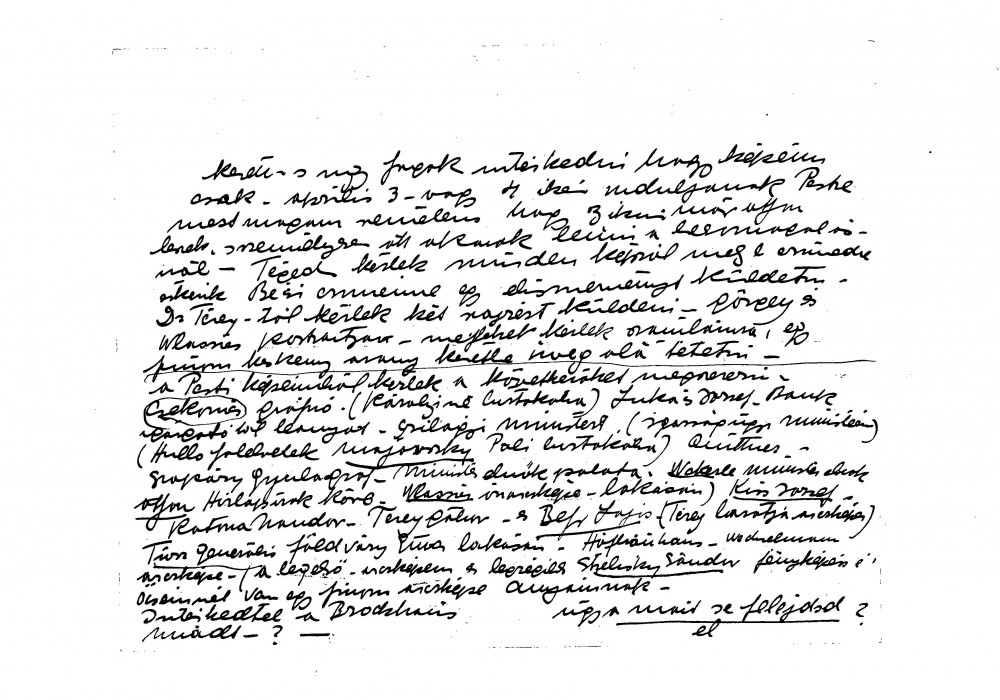 kezét - s úgy fogok intézkedni hogy képeim
csak - április 3 - vagy 4 ikén induljanak Pestre
mert magam remélem hogy 3 ikán már ottan
leszek, személyesen ott akarok lenni a becsomagolás-
nál - Téged kérlek minden képről meg l
érkezik Bécsi címemre egy elismervényt küldetni -
Dr Térey - től kérlek két rajzot küldeni - Görgey és
Wlassics portraitját - melyeket kérlek számlámra, egy
finom keskeny arany keretbe üveg alá tétetni -
a Pesti képeimből kérlek a következőket megszerezni -
Csekonics grófnő. (Károlyiné birtokába) Lukács József - Bank
igazgató leányai - Szilágyi minisztert, (igazságügyi ministerium)
(Hulló falevelek Majovszky Pali birtokába)
Szapáry Gyula gróf - Minister elnök palota. Wekerle minister elnök
ottan Hírlapírók köre - Wlassics arcképe - lakásán) Kiss József -
Katona Nándor - Térey Gábor - s Lajos (Térey barátja arcképe)
Türr Generális Földváry lakásán -
arcképe - (a legelső arcképem s legrégibb Sándor fényképész é'
van egy finom arcképe Anyámnak -
Intézkedtél a Brockhaus ugye mait se felejdsd ?
miatt - ? — el